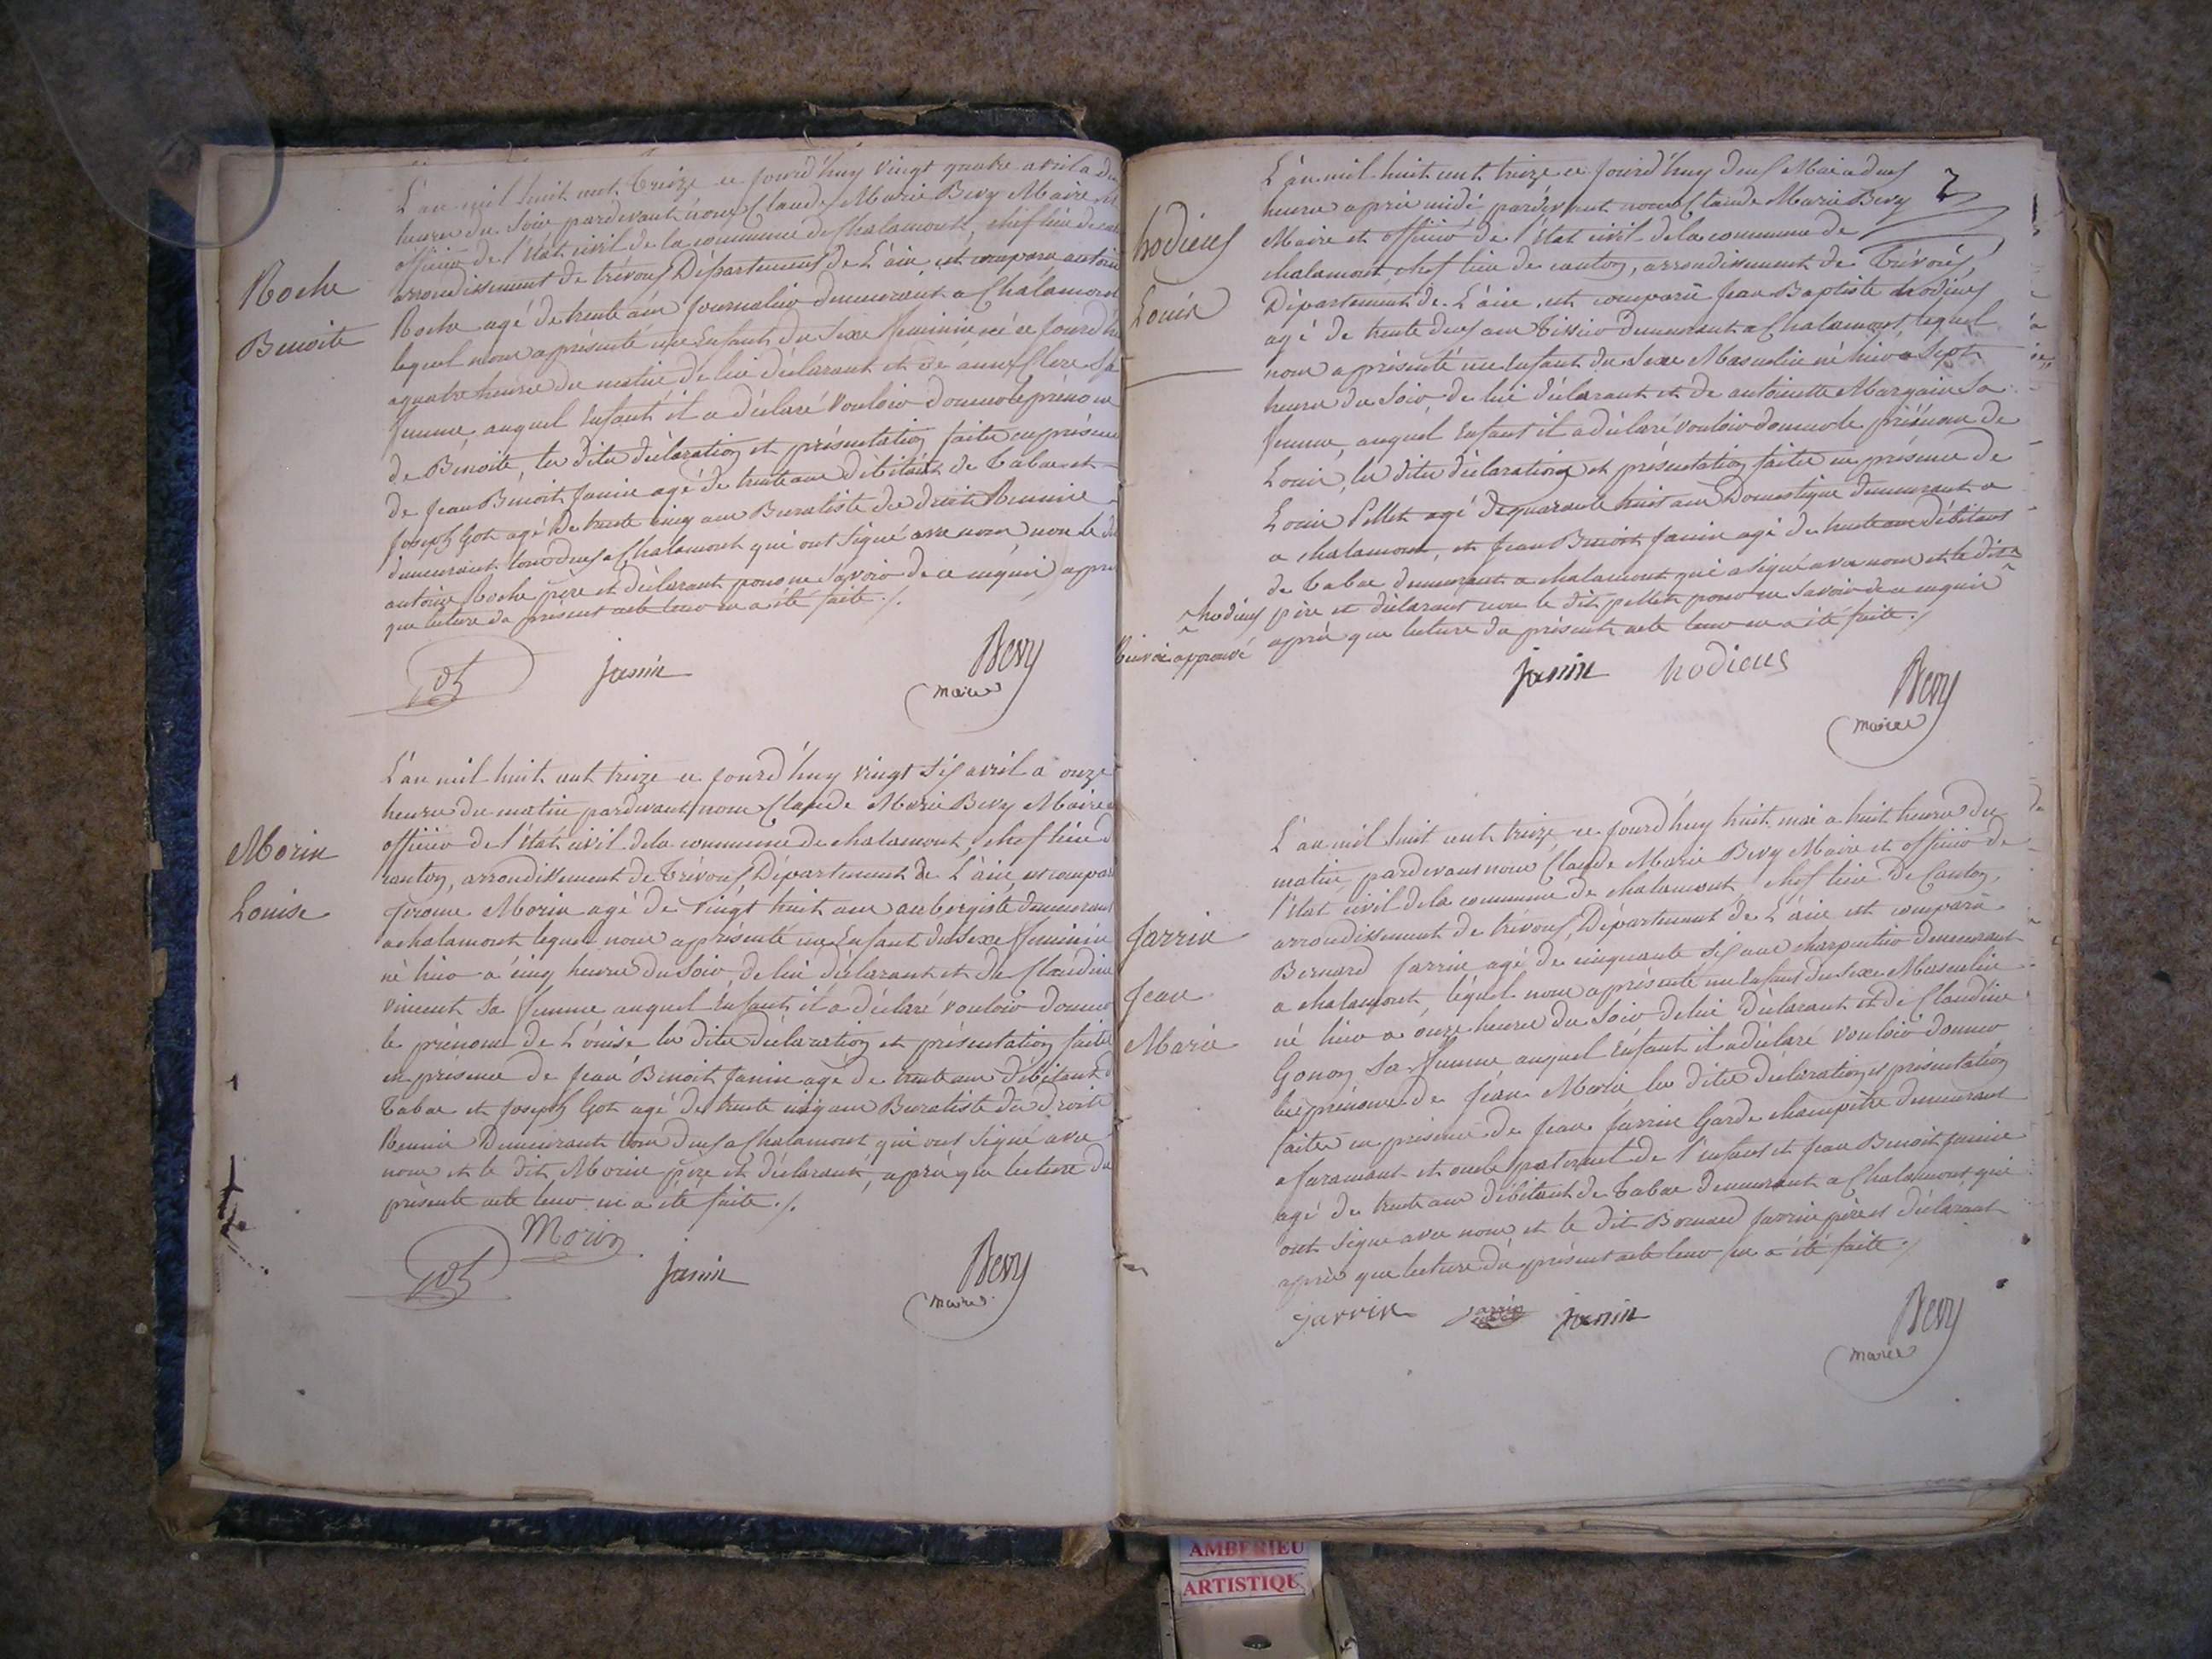 Roche
Benoite
L'an mil huit cent treize ce jourd'huy vingt quatre avril a
heures du soir pardevant nous Claude Marie Bevy Maire et
officier de l'état civil de la commune de Chalamont, chef lieu de
arrondissement de trévoux Département de L'ain, est comparu antoine
Roche agé de trente ans journalier demeurant a Chalamont
lequel nous a présenté une Enfant du Sexe feminin né ce jourd'hui
a quatre heures du matin de lui déclarant et de
femme auquel Enfant il a déclaré vouloir donner le prénom
de Benoite, les dites déclaration et présentation faites en présence
de Jean Benoit Janin agé de trente ans débitant de tabac et
Joseph Got agé de trente cinq ans Buraliste des droits Reunis
demeurant tous deux a Chalamont qui ont signé avec nous non le dit
antoine Roche père et déclarant pour ne savoir de ce enquis après
que lecture du présent acte leur en a été faite ./.
Got Janin Bevy
maire
Morin
Louise
L'an mil huit cent treize ce jourd'huy vingt six avril a onze
heures du matin pardevant nous Claude Marie Bevy Maire
officier de l'état civil de la commune de chalamont, chef lieu d
canton, arrondissement de Trévoux, Département de L'ain, est compar
Jerome Morin agé de vingt huit ans aubergiste demeurant
a chalamont lequel nous a présenté une Enfant du Sexe feminin
né hier a cinq heures du soir de lui déclarant et de Claudine
vincent sa femme auquel Enfant il a déclaré vouloir donner
le prénom de Louise les dites déclaration et présentation faites
en présence de Jean Benoit Janin agé de trente ans débitant d
tabac et Joseph Got agé de trente cinq ans Buraliste des droits
Reunis Demeurant tous deux a Chalamont qui ont signé avec
nous et le dit Morin père et déclarant, après que lecture du
présente acte leur en a été faite ./.
Morin
Got Janin Bevy
maire
7
hodieus
Louis
L'an mil huit cent treize ce jourd'huy deux Mai a deux
heures après midi pardevant nous Claude Marie Bevy
Maire et officier de l'état civil de la commune de
chalamont chef lieu de canton, arrondissement de Trévoux,
Département de L'ain, est comparu Jean Baptiste hodieus
agé de trente deux ans tissier demeurant a Chalamont, lequel
nous a présenté un Enfant du Sexe Masculin né hier a Sept
heures du soir, de lui déclarant et de antoinette Margain sa
femme, auquel Enfant il a déclaré vouloir donner le prénom de
Louis, les dites déclaration et présentation faites en présence de
Louis Pellet agé de quarante huit ans Domestique demeurant a
a chalamont, et Jean Benoit Janin agé de trente ans débitant
de tabac demeurant a chalamont qui a signé avec nous et le dit
hodieus père et déclarant non le dit pellet pour ne savoir de ce enquis
Renvoi approuvé
après que lecture du présent acte leur en a été faite ./
Janin hodieus Bevy
maire
Jarrin
Jean
Marie
L'an mil huit cent treize, ce jourd'huy huit mai a huit heures du
matin pardevant nous Claude Marie Bevy Maire et officier de
l'état civil de la commune de chalamont, chef lieu de Canton,
arrondissement de trévoux, Département de L'ain est comparu
Bernard Jarrin agé de cinquante six ans charpentier demeurant
a chalamont, lequel nous a présenté un Enfant du Sexe Masculin
né hier a onze heures du soir de lui déclarant et de Claudine
Gonon sa femme auquel Enfant il a déclaré vouloir donner
les prénoms de Jean Marie les dites déclaration et présentation
faites en présence de Jean Jarrin Garde champêtre demeurant
a faramant et oncle paternel de l'enfant et Jean Benoit Janin
agé de trente ans débitant de tabac demeurant a Chalamont, qui
ont signé avec nous et le dit Bernard Jarrin père et déclarant
après que lecture du présent acte leur en a été faite ./
jarrin jarrin Janin Bevy
maire
AMBERIEU
ARTISTIQU